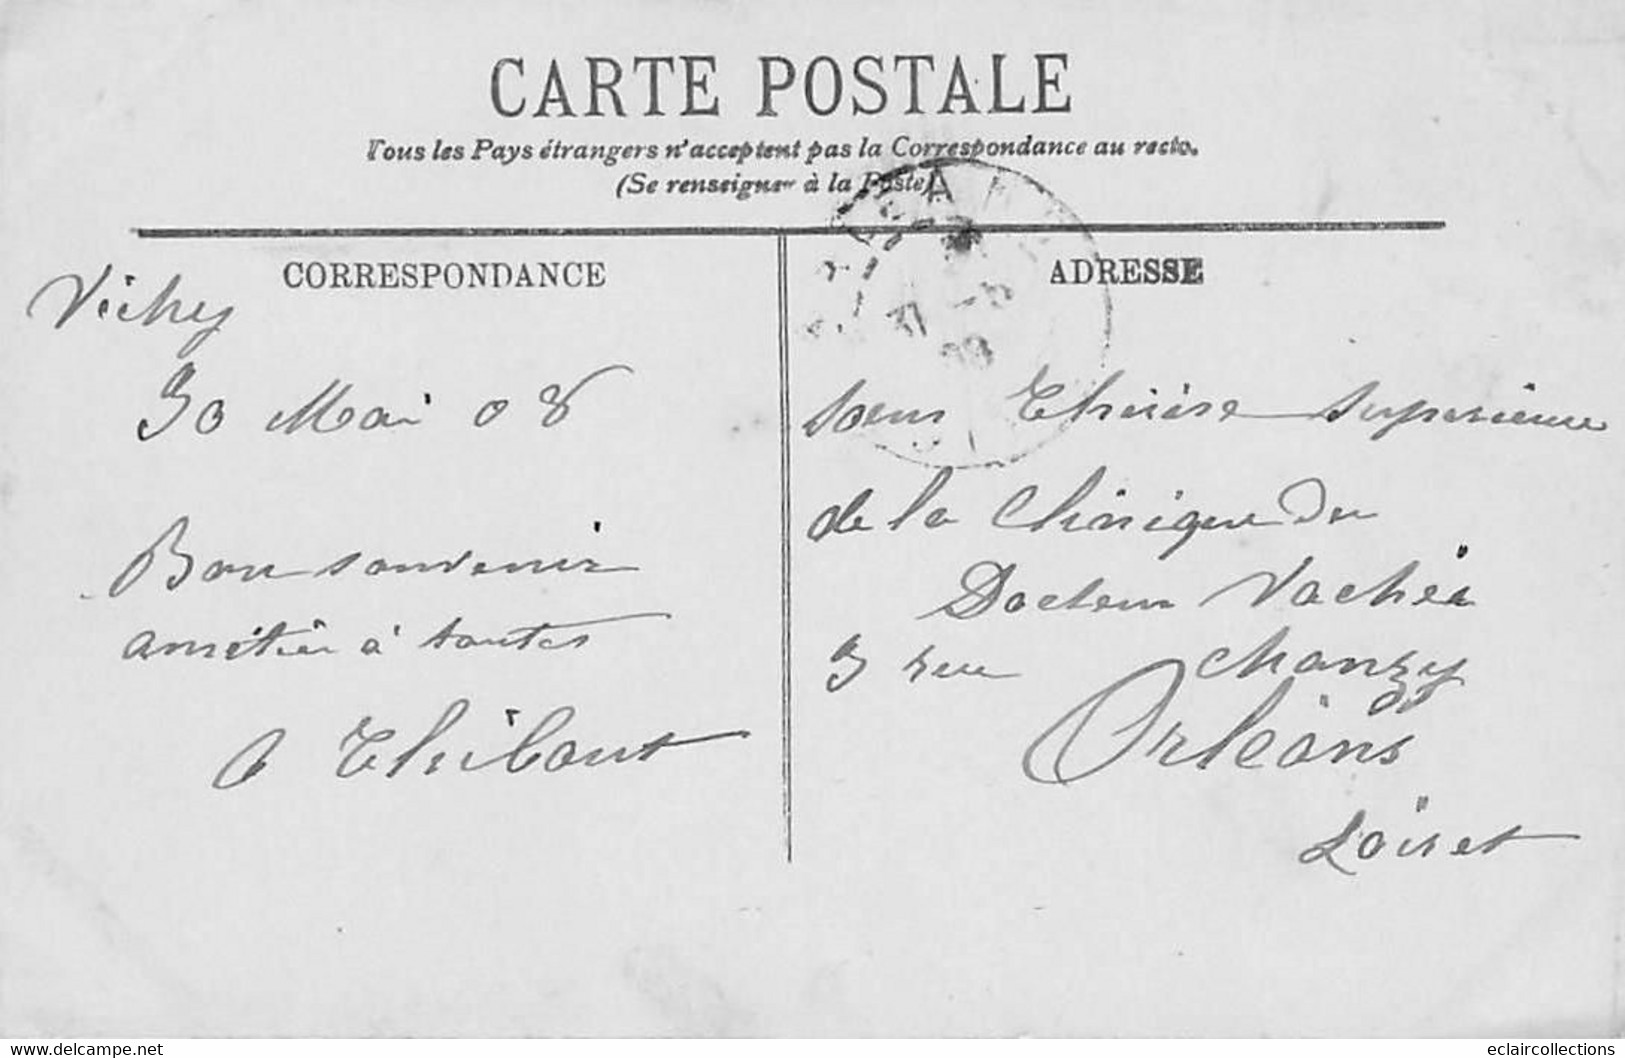 CARTE POSTALE
Tous les Pays étrangers n'acceptent pas la Correspondance au recto.
(Se renseigner à la Poste)
CORRESPONDANCE
Vichy
30 Mai 08
Bon souvenir
amitié à toutes
Thibout
ADRESSE
31 -5
08
Soeur Thérèse Supérieure
de la Clinique du
Docteur Vacher
3 rue Chanzy
Orléans
Loiret
www.delcampe.net
eclaircollections